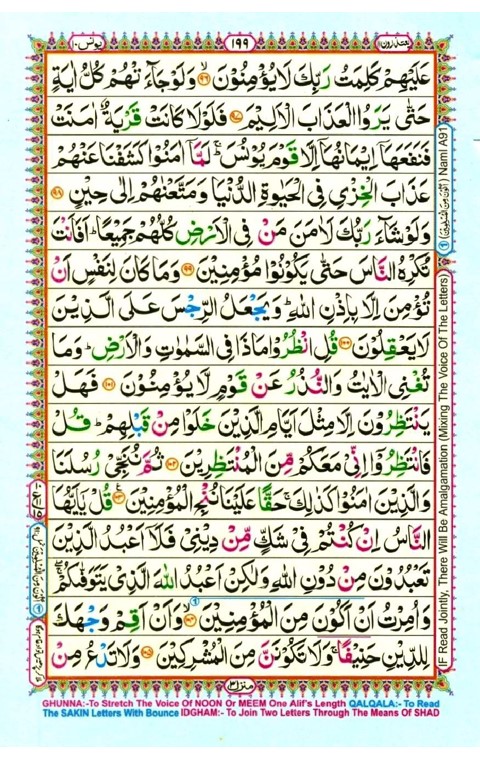 يونس ١٠
١٩٩
يعتذرون ١١
عَلَيْهِمْ كَلِمَتُ رَبِّكَ لَا يُؤْمِنُوْنَ ۙ﴿۹۶﴾ وَلَوْ جَآءَتْهُمْ كُلُّ اٰيَةٍ
حَتّٰى يَرَوُا الْعَذَابَ الْاَلِيْمَ ﴿۹۷﴾ فَلَوْلَا كَانَتْ قَرْيَةٌ اٰمَنَتْ
فَنَفَعَهَاۤ اِيْمَانُهَاۤ اِلَّا قَوْمَ يُوْنُسَ ؕ لَمَّاۤ اٰمَنُوْا كَشَفْنَا عَنْهُمْ
عَذَابَ الْخِزْىِ فِى الْحَيٰوةِ الدُّنْيَا وَمَتَّعْنٰهُمْ اِلٰى حِيْنٍ ﴿۹۸﴾
وَلَوْ شَآءَ رَبُّكَ لَاٰمَنَ مَنْ فِى الْاَرْضِ كُلُّهُمْ جَمِيْعًا ؕ اَفَاَنْتَ
تُكْرِهُ النَّاسَ حَتّٰى يَكُوْنُوْا مُؤْمِنِيْنَ ﴿۹۹﴾ وَمَا كَانَ لِنَفْسٍ اَنْ
تُؤْمِنَ اِلَّا بِاِذْنِ اللّٰهِ ؕ وَيَجْعَلُ الرِّجْسَ عَلَى الَّذِيْنَ
لَا يَعْقِلُوْنَ ﴿۱۰۰﴾ قُلِ انْظُرُوْا مَاذَا فِى السَّمٰوٰتِ وَالْاَرْضِ ؕ وَمَا
تُغْنِى الْاٰيٰتُ وَالنُّذُرُ عَنْ قَوْمٍ لَّا يُؤْمِنُوْنَ ﴿۱۰۱﴾ فَهَلْ
يَنْتَظِرُوْنَ اِلَّا مِثْلَ اَيَّامِ الَّذِيْنَ خَلَوْا مِنْ قَبْلِهِمْ ؕ قُلْ
فَانْتَظِرُوْۤا اِنِّىْ مَعَكُمْ مِّنَ الْمُنْتَظِرِيْنَ ﴿۱۰۲﴾ ثُمَّ نُنَجِّىْ رُسُلَنَا
وَالَّذِيْنَ اٰمَنُوْا كَذٰلِكَ ۚ حَقًّا عَلَيْنَا نُنْجِ الْمُؤْمِنِيْنَ ﴿۱۰۳﴾ قُلْ يٰۤاَيُّهَا
النَّاسُ اِنْ كُنْتُمْ فِىْ شَكٍّ مِّنْ دِيْنِىْ فَلَاۤ اَعْبُدُ الَّذِيْنَ
تَعْبُدُوْنَ مِنْ دُوْنِ اللّٰهِ وَلٰكِنْ اَعْبُدُ اللّٰهَ الَّذِىْ يَتَوَفّٰٮكُمْ ۖۚ
وَاُمِرْتُ اَنْ اَكُوْنَ مِنَ الْمُؤْمِنِيْنَ ﴿۱۰۴﴾ وَاَنْ اَقِمْ وَجْهَكَ
لِلدِّيْنِ حَنِيْفًا ۚ وَلَا تَكُوْنَنَّ مِنَ الْمُشْرِكِيْنَ ﴿۱۰۵﴾ وَلَا تَدْعُ مِنْ
منزل ٣
IF Read Jointly, There Will Be Amalgamation (Mixing The Voice Of The Letters)
Naml A91
GHUNNA:-To Stretch The Voice Of NOON Or MEEM One Alif's Length QALQALA:- To Read
The SAKIN Letters With Bounce IDGHAM:- To Join Two Letters Through The Means Of SHAD